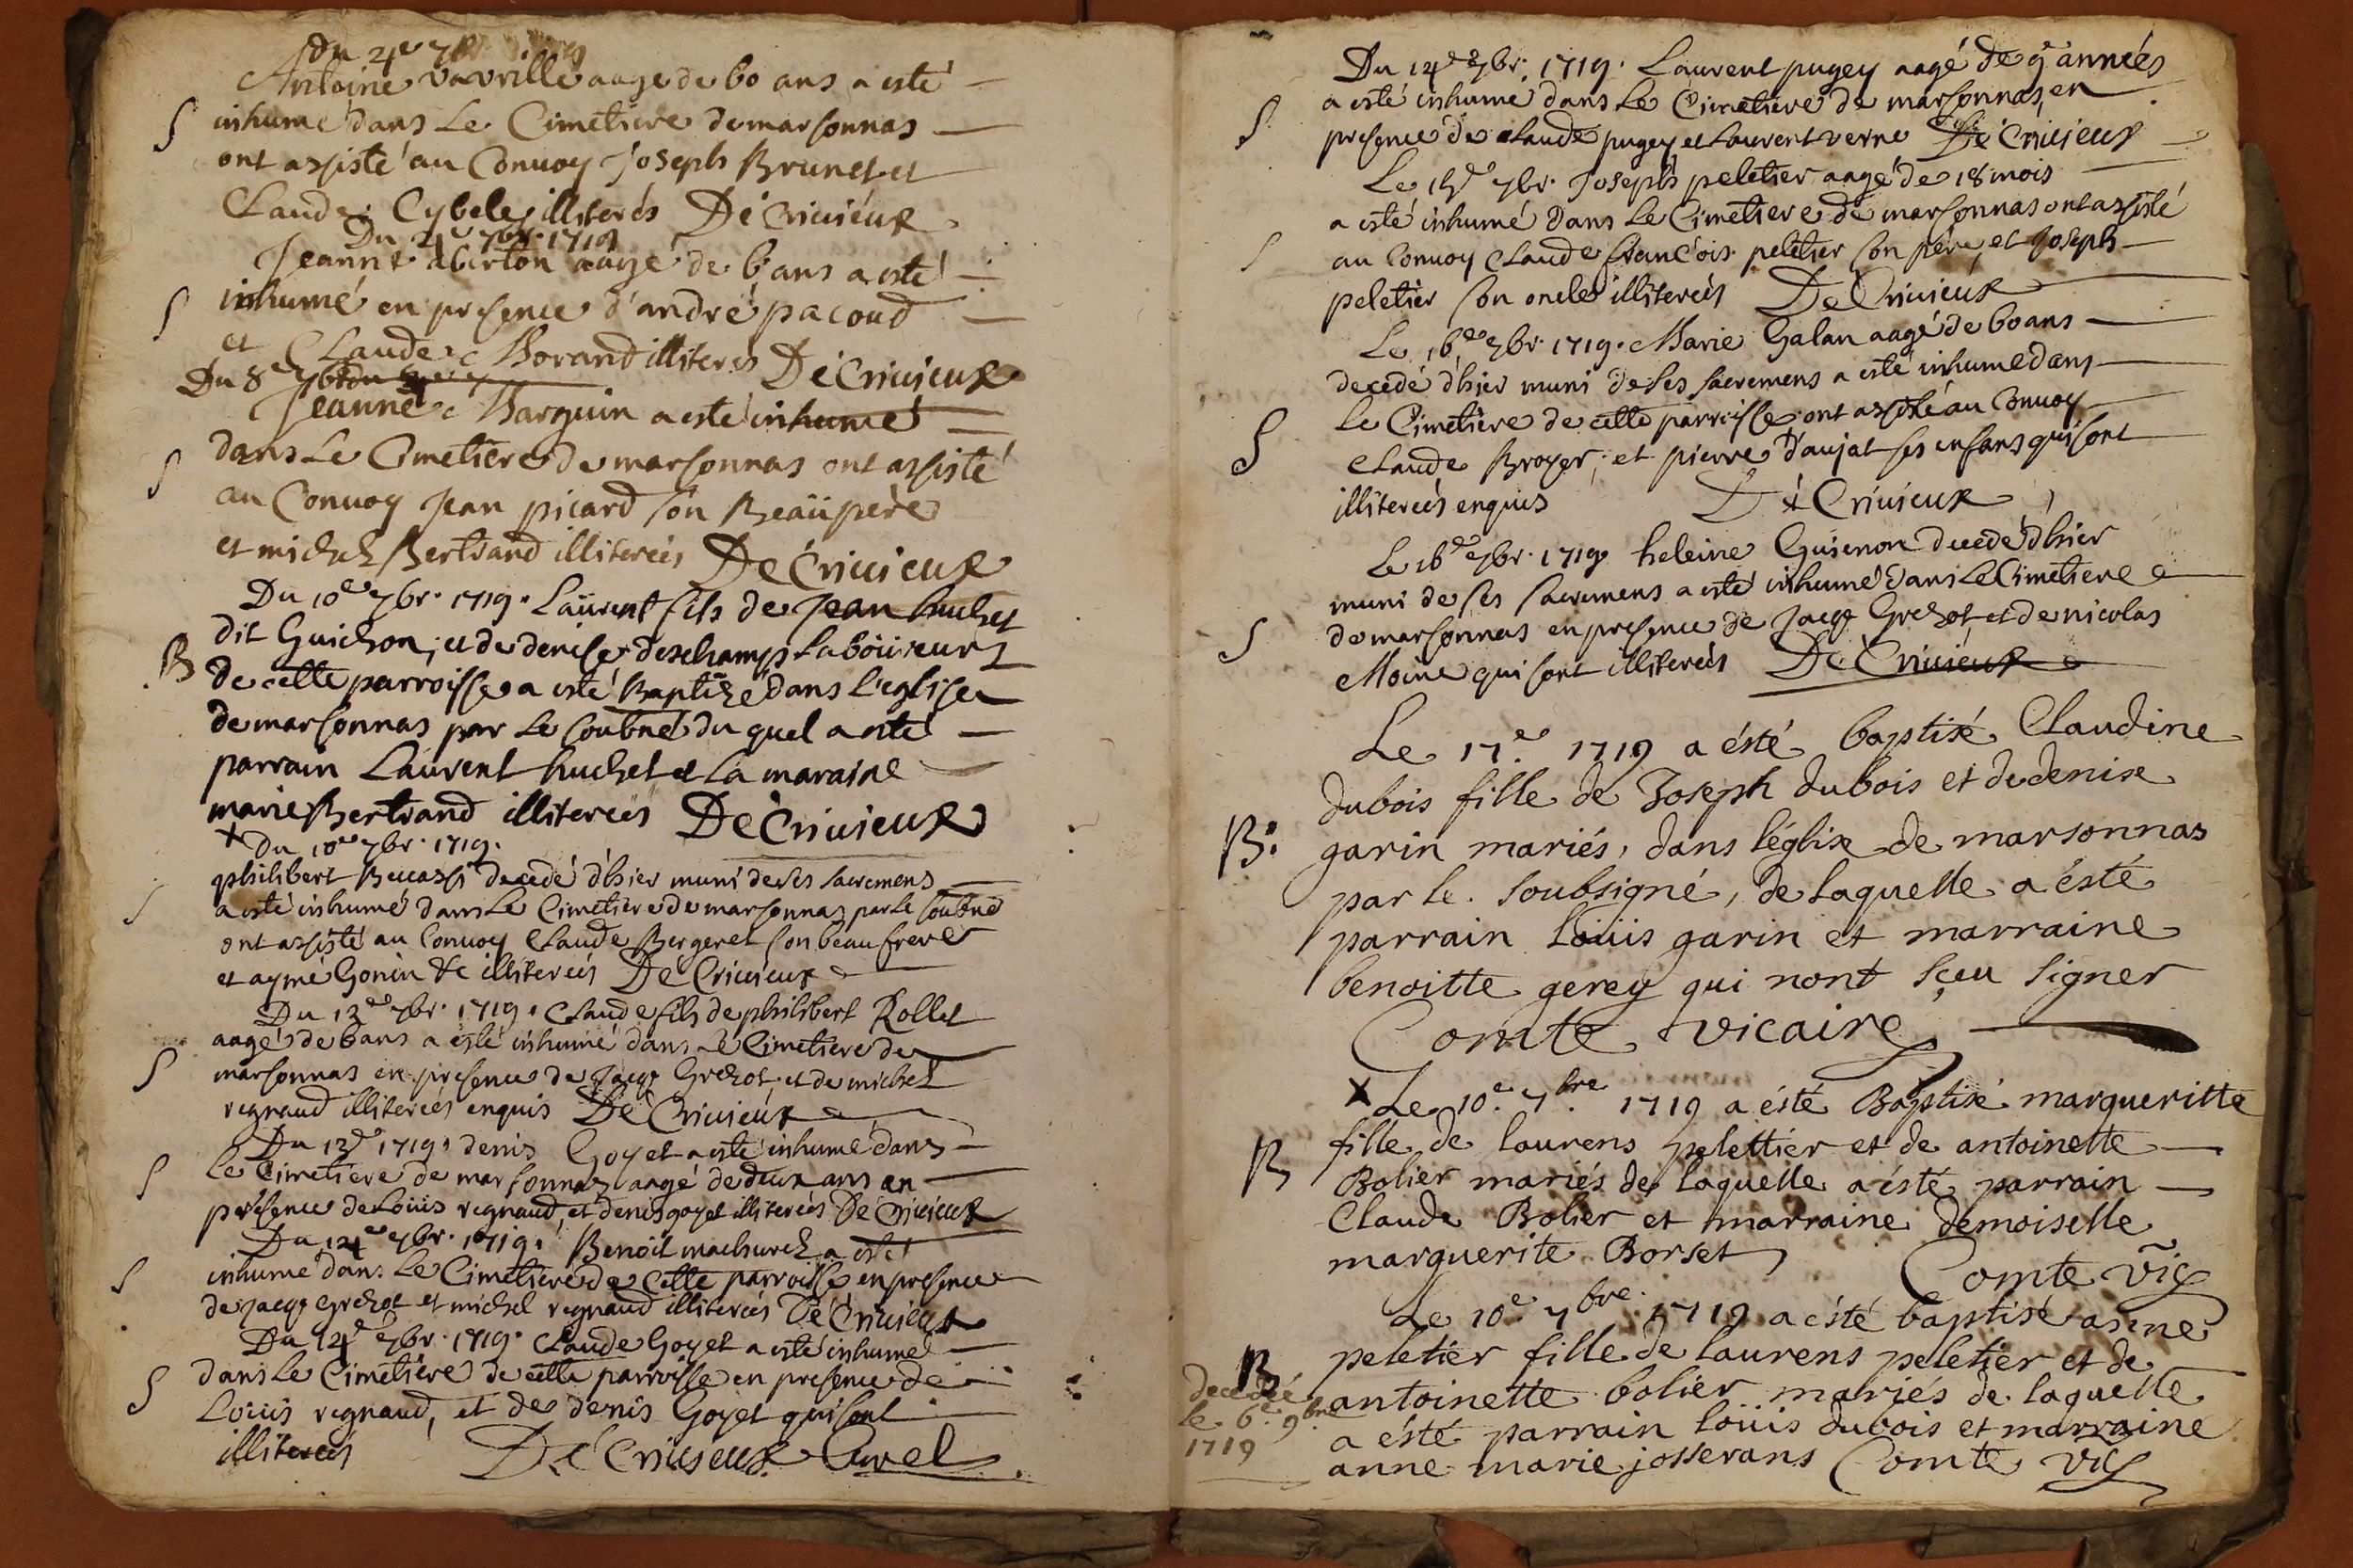 Du 4e 7br
Antoine vavrille aage de 60 ans a esté
S inhumé dans Le Cimetiere de marsonnas
ont assisté au Convoy Joseph Brunet et
Claude Cybele illiterés De Criuieux
Du 4e 7br. 1719
Jeanne aberton aagé de 6 ans a esté
S inhumé en presence d'andré pacoud
et Claude Morand illiteres De Criuieux
Du 8e 7br
Jeanne Marguin a esté inhumé
S dans Le Cimetiere de marsonnas ont assisté
au Convoy Jean picard son Beaüpere
et michel Bertrand illitereés De Criuieux
Du 10e 7br. 1719. Laürent fils de Jean huchet
dit Guichon, et de denise deschamps Laboüreurs
B de cette parroisse a esté Baptizé dans l'eglise
de marsonnas par Le soubné du quel a esté
parrain Laürent huchet et La maraine
marie Bertrand illitereés De Criuieux
x Du 10e 7br. 1719.
philibert Beccassi decedé d'hier muni de ses sacremens
S a esté inhumé dans Le Cimetiere de marsonnas par Le soubné
ont assisté au Convoy Claude Bergeret son beau frere
et aymé Gonin &c illitereés De Criuieux
Du 13e 7br. 1719. Claude fils de philibert Rollet
aagé de 6 ans a esté inhumé dans Le Cimetiere de
S marsonnas en presence de Jacq Grezot, et de michel
regnaud illitereés enquis De Criuieux
Du 13e 1719. denis Goyet a esté inhumé dans
S Le Cimetiere de marsonnas aagé de deux ans en
presence de Loüis regnaud, et denis goyet illitereés De Criuieux
Du 14e 7br. 1719. Benoit machurez a esté
S inhumé dans Le Cimetiere de cette parroisse en presence
de Jacq Grezot et michel regnaud illitereés De Criuieux
Du 14e 7br. 1719. Claude Goyet a esté inhumé
S dans Le Cimetiere de cette parroisse en presence de
Loüis regnaud, et de denis Goyet qui sont
illitereés De Criuieux Curel
Du 14e 7br. 1719. Laurent pugey aagé de 9 années
S a esté inhumé dans Le Cimetiere de marsonnas, en
presence de Claude pugey et Laurent verne De Criuieux
Le 15e 7br. Joseph peletier aagé de 18 mois
a esté inhumé dans Le Cimetiere de marsonnas ont assisté
S au Convoy Claude françois peletier son pere, et Joseph
peletier son oncle illitereés De Criuieux
Le 16e 7br. 1719. Marie Galan aagé de 60 ans
decedé d'hier muni de ses sacremens a esté inhumé dans
S Le Cimetiere de cette parroisse, ont assisté au Convoy
Claude Broyer, et pierre d'aujat ses enfans qui sont
illitereés enquis De Criuieux
Le 16e 7br. 1719 heleine Guienon decedé d'hier
muni de ses sacremens a esté inhumé dans Le Cimetiere
S de marsonnas en presence de Jacq Grezot et de nicolas
Moine qui sont illitereés De Criuieux
Le 17e 1719 a ésté baptisé Claudine
dubois fille de Joseph dubois et de denise
B: garin mariés, dans léglise de marsonnas
par le soubsigné, de laquelle a ésté
parrain loüis garin et marraine
benoitte gerey qui nont sçeu signer
Comte vicaire
x Le 10e. 7bre 1719 a ésté Baptisé margueritte
B fille de laurens pelettier et de antoinette
Bolier mariés de laquelle a ésté parrain
Claude Bolier et marraine demoiselle
marguerite Borset Comte vic
Le 10e 7bre. 1719 a ésté baptisé
B peletier fille de laurens peletier et de
antoinette bolier mariés de laquelle
a ésté parrain loüis dubois et marraine
anne marie josserans Comte vic
decedée
le 6e. 9bre
1719